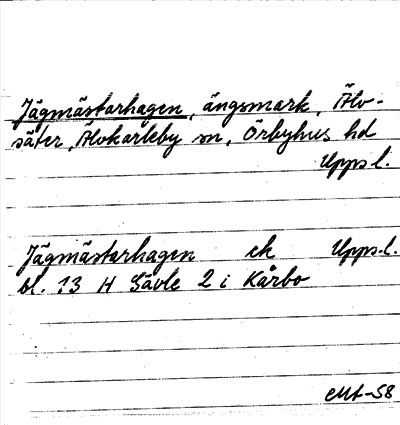 Jägmästarhagen, ängsmark, Älv-
säter, Älvkarleby sn, Örbyhus hd
Upps.l.
Jägmästarhagen ek Upps.l.
bl. 13 H Gävle 2 i Kårbo
EMt-58